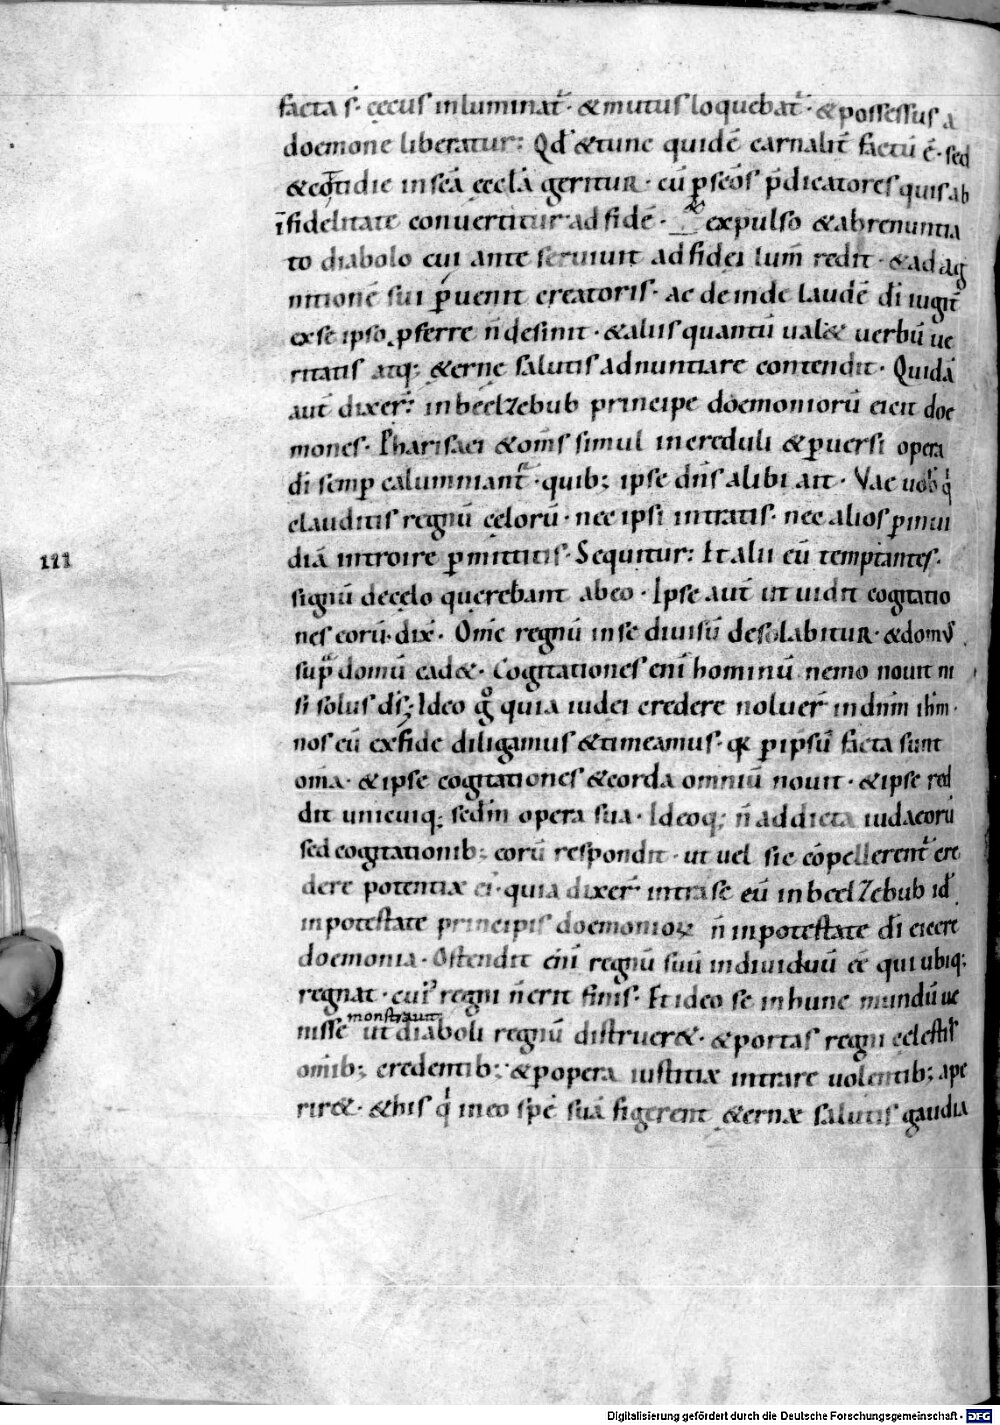 facta s̄. cęcus inluminat̄. & mutus loquebat̄. & possessus a
doemone liberatur; Qd̄ & tunc quidē carnalit̄ factū ē. sed
& cotidie in scā ęcclā geritur. cū p̄ scōs p̄dicatores quis ab
īfidelitate conuertitur ad fidē. expulso & abrenuntia
to diabolo cui ante seruiuit ad fidei lum̄ redit. & ad ag
nitionē sui p̄uenit creatoris. ac deinde laudē dī iugit̄
ex se ipso, pferre n̄ desinit. & aliis quantū ual& uerbū ue
ritatis atq; &ernę salutis adnuntiare contendit. Quidā
aut̄ dixer̄. in beelzebub principe doemoniorū eicit doe
mones. Pharisaei & om̄s simul increduli & p̄uersi opera
dī semp̄ calumniant̄. quib; ipse dn̄s alibi ait. Vae uob̄ q̄
clauditis regnū cęlorū. nec ipsi intratis. nec alios p̄ inui
diā introire p̄mittitis. Sequitur: Et alii eū temptantes.
III
signū de cęlo querebant ab eo. Ipse aut̄ ut uidit cogitatio
nes eorū. dix̄. Om̄e regnū in se diuisū desolabitur. & domus
sup̄ domū cad&. Cogitationes eni hominū nemo nouit ni
si solus ds̄; Ideo g̊ quia iudei credere noluer̄ in dnm̄ ihm̄.
nos eū ex fide diligamus & timeamus. q̄ p̄ ipsū facta sunt
om̄a. & ipse cogitationes & corda omniū nouit. & ipse red
dit unicuiq; sedm̄ opera sua. Ideoq; n̄ ad dicta iudaeorū
sed cogitationib; eorū respondit. ut uel sic cōpellerent̄ cre
dere potentiæ ei. quia dixer̄ intra se eū in beelzebub id̄
in potestate principis doemonioꝝ n̄ in potestate dī eicere
doemonia. Ostendit eni regnū suū indiuiduū eē qui ubiq;
regnat. cui᾿ regni n̄ erit finis. Et ideo se in hunc mundū ue
nisse monstrauit ut diaboli regnū distruer&. & portas regni cęlestis
omīb; credentib; & p opera iustitiæ intrare uolentib; ape
rir&. & his q̄ in eo spē suā figerent &ernæ salutis gaudia
Digitalisierung gefördert durch die Deutsche Forschungsgemeinschaft - DFG